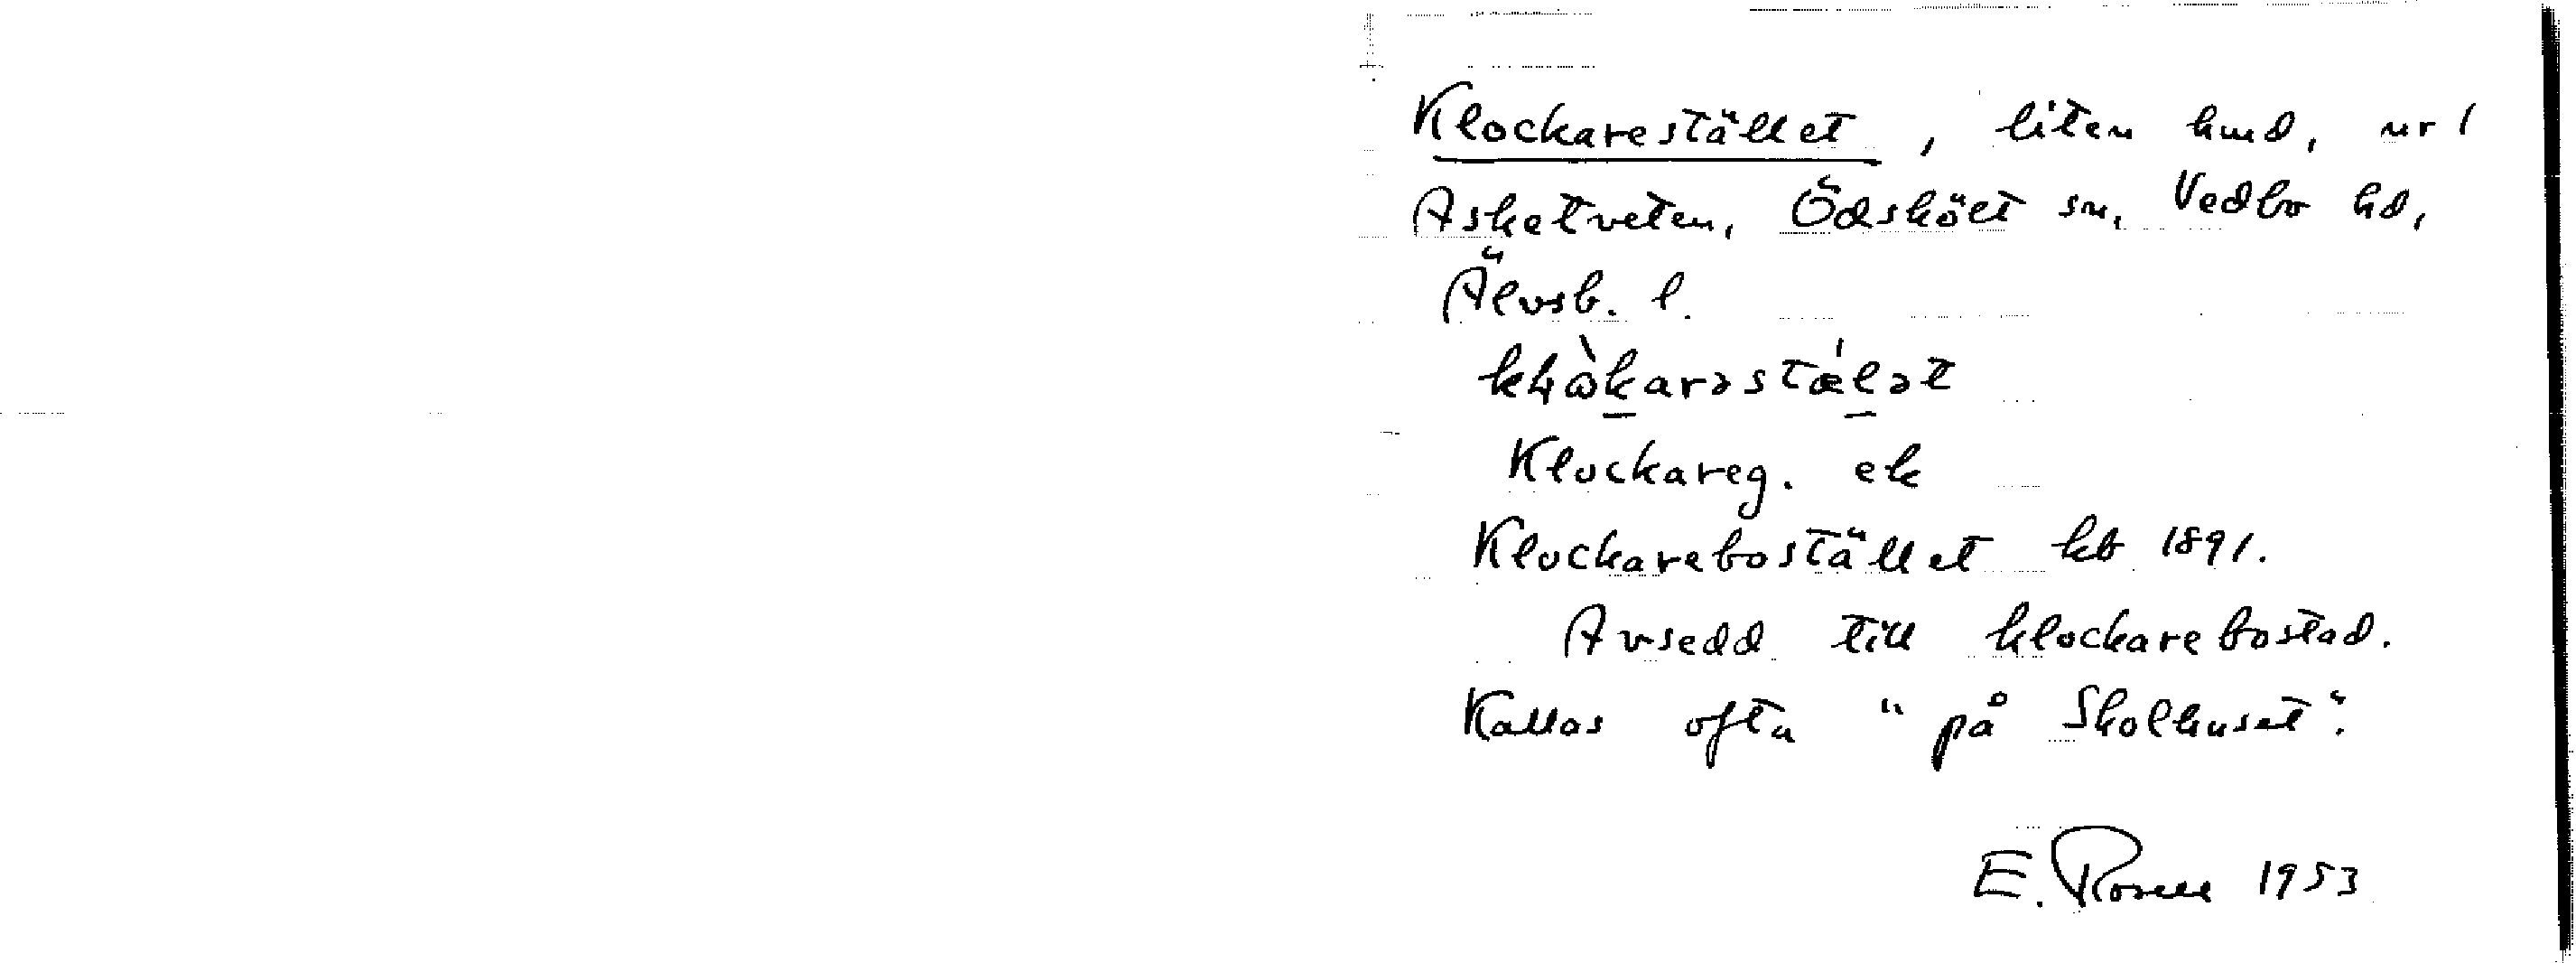 Klockarestället, liten hmd, ur 1
Asketveten, Ödskölt sn, Vedbo hd,
Älvsb. l.
Klockareg. ek
Klockarebostället kb 1891.
Avsedd till klockarebostad.
Kallas ofta "på Skolhuset".
E. Rosell 1953